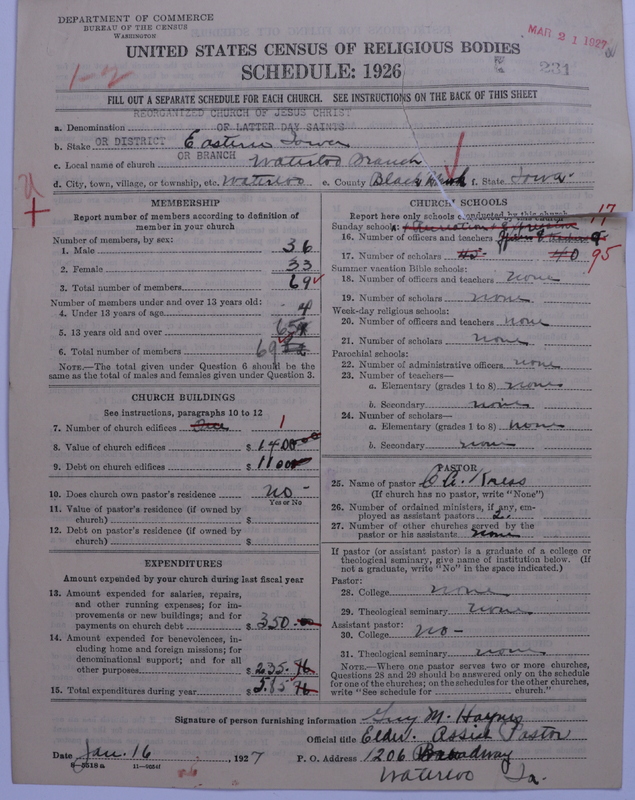 DEPARTMENT OF COMMERCE
BUREAU OF THE CENSUS
WASHINGTON
MAR 21 1927
UNITED STATES CENSUS OF RELIGIOUS BODIES
SCHEDULE: 1926
231
FILL OUT A SEPARATE SCHEDULE FOR EACH CHURCH. SEE INSTRUCTIONS ON THE BACK OF THIS SHEET
REORGANIZED CHURCH OF JESUS CHRIST
a. Denomination OF LATTER DAY SAINTS
b. Stake OR DISTRICT Eastern Iowa
OR BRANCH
c. Local name of church Waterloo Branch
d. City, town, village, or township, etc. Waterloo e. County Black Hawk f. State Iowa
MEMBERSHIP
Report number of members according to definition of
member in your church
Number of members, by sex:
1. Male 36
2. Female 33
3. Total number of members 69
Number of members under and over 13 years old:
4. Under 13 years of age 4
5. 13 years old and over 65
6. Total number of members 69
NOTE.—The total given under Question 6 should be
same as the total of males and females given under Question 3.
CHURCH BUILDINGS
See instructions, paragraphs 10 to 12
7. Number of church edifices One 1
8. Value of church edifices $ 1400
9. Debt on church edifices $ 1100
10. Does church own pastor's residence no
Yes or No
11. Value of pastor's residence (if owned by
church) $
12. Debt on pastor's residence (if owned by
church) $
EXPENDITURES
Amount expended by your church during last fiscal year
13. Amount expended for salaries, repairs,
and other running expenses; for im-
provements or new buildings; and for
payments on church debt $ 350.00
14. Amount expended for benevolences, in-
cluding home and foreign missions; for
denominational support; and for all
other purposes $ 235.76
15. Total expenditures during year $ 585 76
CHURCH SCHOOLS
Report here only schools conducted by this church
Sunday schools: 17
16. Number of officers and teachers
17. Number of scholars 40 95
Summer vacation Bible schools:
18. Number of officers and teachers none
19. Number of scholars none
Week-day religious schools:
20. Number of officers and teachers none
21. Number of scholars none
Parochial schools:
22. Number of administrative officers none
23. Number of teachers—
a. Elementary (grades 1 to 8) none
b. Secondary none
24. Number of scholars—
a. Elementary (grades 1 to 8) none
b. Secondary none
PASTOR
25. Name of pastor
(If church has no pastor, write "None")
26. Number of ordained ministers, if any, em-
ployed as assistant pastors 2
27. Number of other churches served by the
pastor or his assistants none
If pastor (or assistant pastor) is a graduate of a college or
theological seminary, give name of institution below. (If
not a graduate, write "No" in the space indicated.)
Pastor:
28. College none
29. Theological seminary none
Assistant pastor:
30. College no
31. Theological seminary none
NOTE.—Where one pastor serves two or more churches,
Questions 28 and 29 should be answered only on the schedule
for one of the churches; on the schedules for the other churches,
write "See schedule for church."
Signature of person furnishing information Guy M. Haynes
Official title Elder. Assist Pastor
Date Jan. 16, 1927 P. O. Address 1206 Broadway
Waterloo Ia.